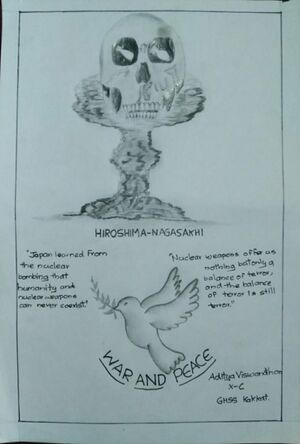 HIROSHIMA-NAGASAKHI
"Japan learned from
the nuclear
bombing that
humanity and
nuclear weapons
can never coexist."
"Nuclear weapons offer us
nothing but only a
balance of terror,
and the balance
of terror is still
terror."
WAR AND PEACE
Aditya Viswandhan
X-C
GHSS Kakkat.